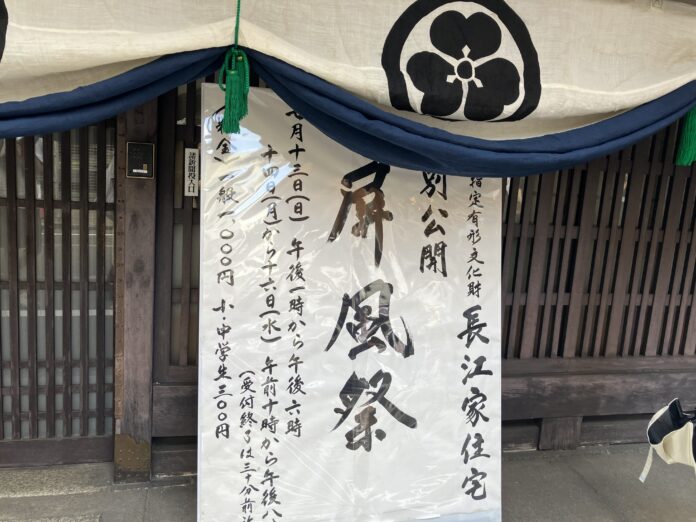 指定有形文化財 長江家住宅
別公開
屏風祭
七月十三日(日) 午後一時から午後六時
十四日(月)から十六日(水) 午前十時から午後八
(受付終了は三十分前
料金 一般一、〇〇〇円 小・中学生三〇〇円
諸新聞投入口